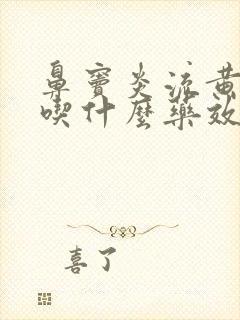 鼻窦炎流黄
喫什麼藥效
喜了